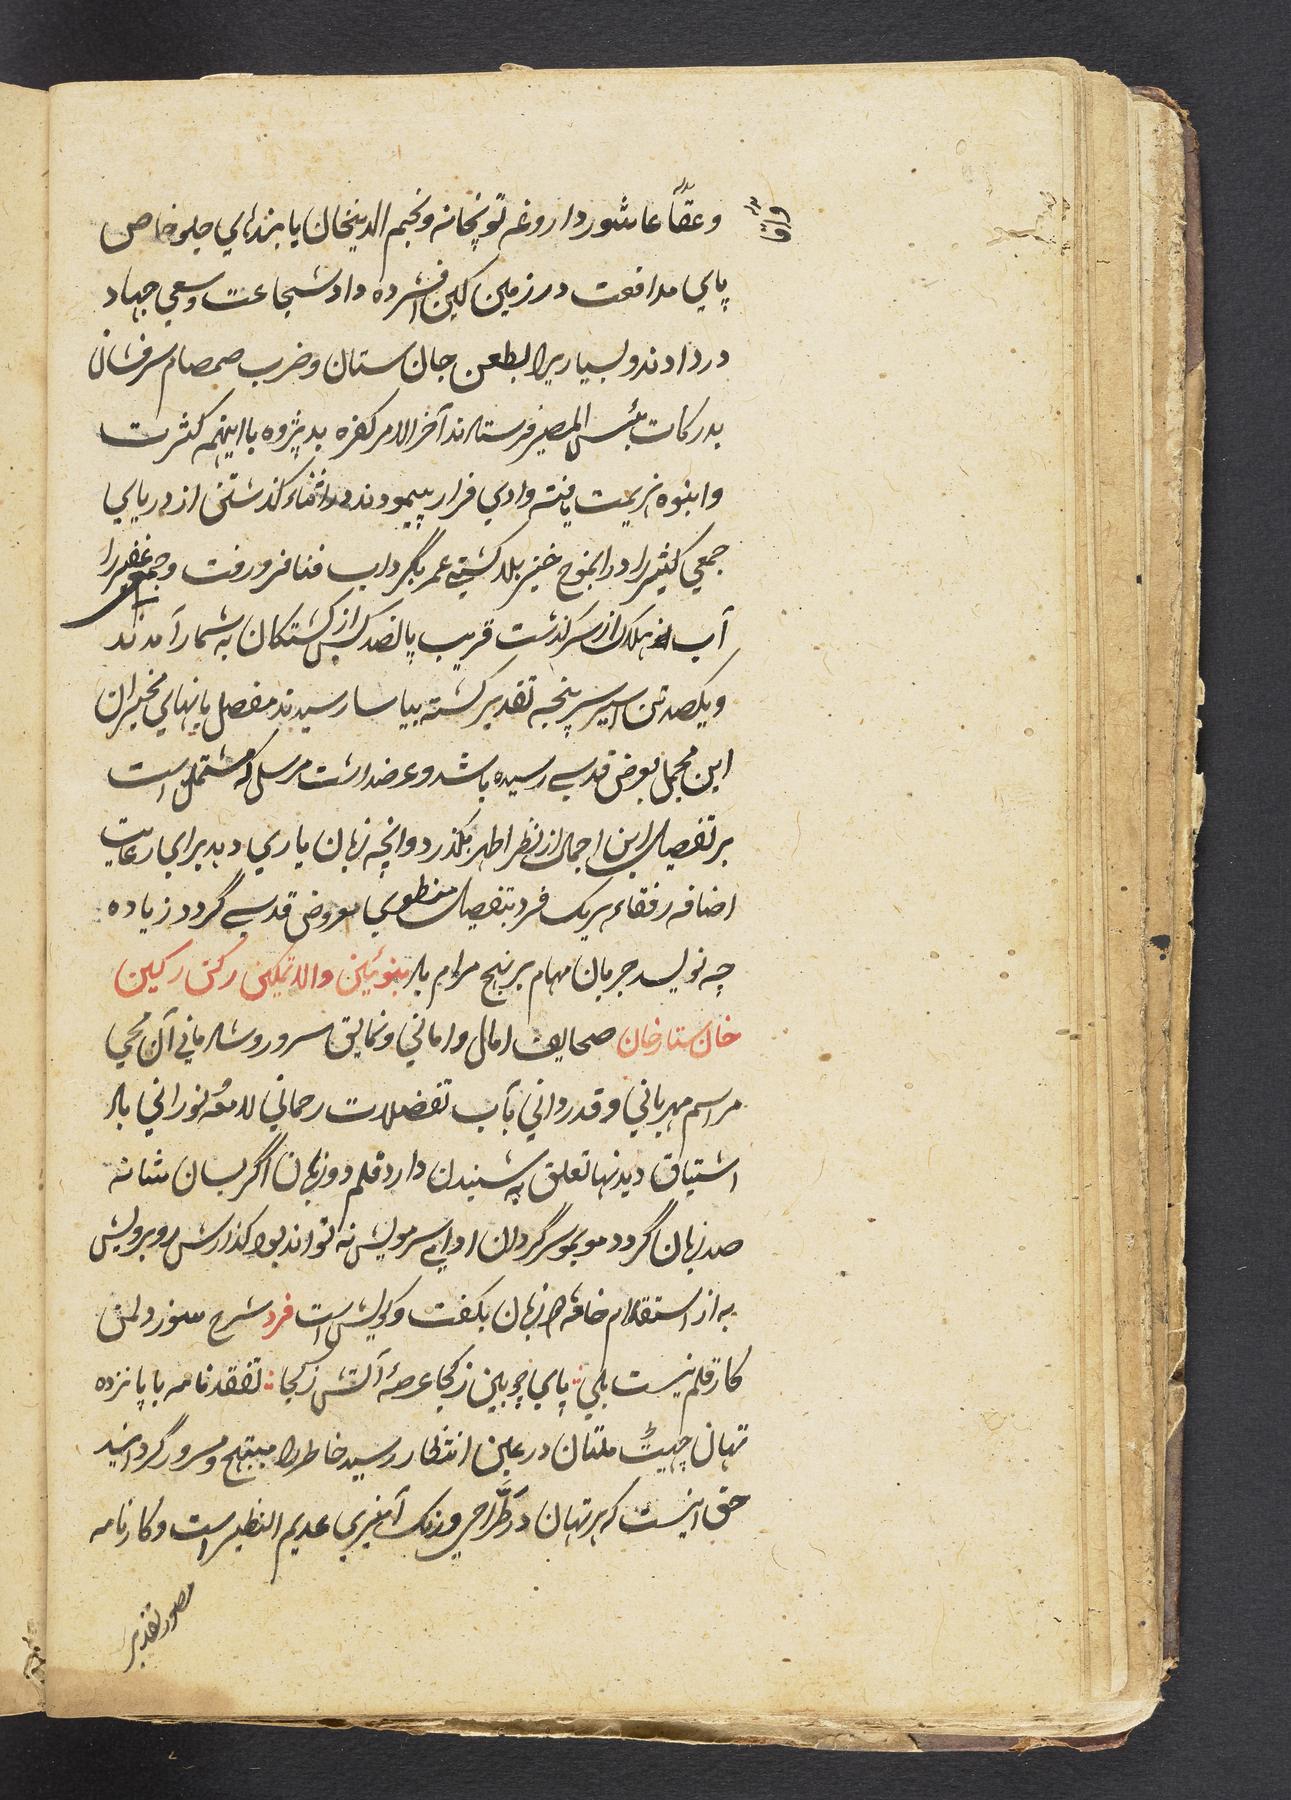 وعقا عاشور داروغه توپخانه ونجم الدینخان بابندهای جلو خاص
واقا
پای مدافعت در زمین کین افشرده داد شجاعت وسعی جهاد
در دادند وبسیاریرا بطعن جان ستان وضرب صمصام سرفشان
بدرکات بئس المصیر فرستادند آخر الامر کفره بد پژوه با اینهمه کثرت
وانبوه هزیمت یافته وادی فرار پیمودند در اثناء کذشتن از دریای
جمعی کثیر را در انموج خیز بلا کشتی عمر بگرداب فنا فرو رفت وجمع غفیر را
آب هلاک از سر کذشت قریب پانصد کس از کشتکان به شمار آمدند
ویکصد تن اسیر سرپنجه تقدیر کشته بیاسا رسیدند مفصل بانهای مخبران
این مجمل بعرض قدسی رسیده باشد وعرضداشت مرسل که مشتمل است
بر تفصیل این اجمال از نظر اطهر بگذرد وانچه زبان یاری دهد برای رعایت
اضافه رفقاء هریک فرد بتفصیل منطوی معروض قدسی گردد زیاده
چه نویسد جریان مهام بر نهج مرام باد بنوئین والا تمکین رکن رکین
خان ستارخان صحایف امال وامانی ونمایق سرور وشادمانی آن محیی
مراسم مهربانی وقدردانی بآب تفضلات رحمانی لامعهٔ نورانی باد
اشتیاق دیدنها تعلق به شنیدن دارد قلم دو زبان اگر بسان شانه
صد زبان گردد موبمو سرگردان ادای سر مویش نه تواند بود کذارش روبرویش
به از استقدام خامه دو زبان بکفت وکویش است فرد شرح سوز دل من
کار قلم نیست بلی پای چوبین ز کجا عرصهٔ آتش ز کجا تفقدنامه با پانزده
تهان چهیت ملتان در عین انتظار رسید خاطر را مبتهج ومسرور گردانید
حق اینست که هر تهان در طراحی ورنک آمیزی عدیم النظیر است وکارنامه
مصور تقدیر